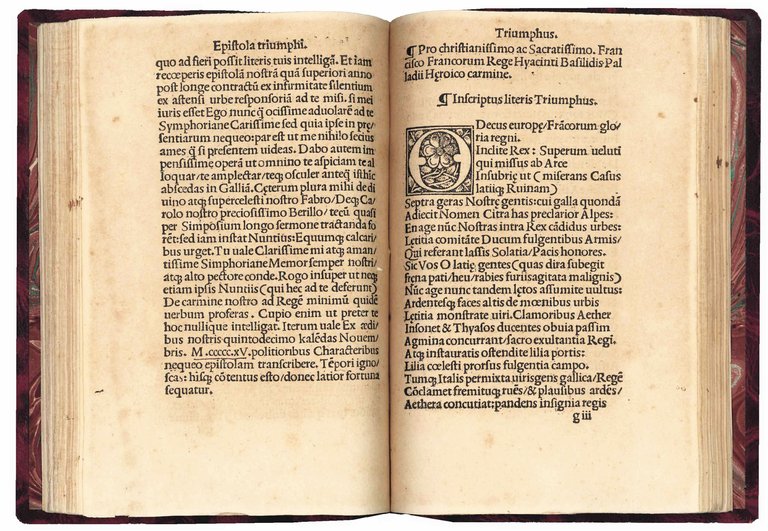 Epistola triumphi.
quo ad fieri possit literis tuis intelligã. Et iam
recœperis epistolã nostrã quã superiori anno
post longe contractũ ex infirmitate silentium
ex astensi urbe responsoriã ad te misi. si mei
iuris esset Ego nunc̃ꝗ ocissime aduolarẽ ad te
Symphoriane Carissime sed quia ipse in prę/
sentiarum nequeo: par est ut me nihilo seciɰs
ames q̃ si presentem uideas. Dabo autem im
pensissime operã ut omnino te aspiciam te al
loquar/te amplectar/teqꝫ osculer anteq̃ isthic
abscedas in Galliã. Cęterum plura mihi de di
uino atqꝫ supercelesti nostro Fabro/Deqꝫ Ca/
rolo nostro preciosissimo Berillo/tecũ quasi
per Simposium longo sermone tractanda fo
rẽt: sed iam instat Nuntius: Equumqꝫ calcari/
bus urget. Tu uale Clarissime mi atqꝫ aman/
tissime Simphoriane Memor semper nostri/
atqꝫ alto pectore conde. Rogo insuper ut neqꝫ
etiam ipsis Nuntiis (qui hec ad te deferunt)
De carmine nostro ad Regẽ minimũ quidẽ
uerbum proferas. Cupio enim ut preter te
hoc nullique intelligat. Iterum uale Ex ędi/
bus nostris quintodecimo kalẽdas Nouem/
bris. M.ccccc.xV. politioribus Characteribus
nequeo epistolam transcribere. Tẽpori igno/
scas: hisqꝫ cõtentus esto/donec latior fortuna
sequatur.
Triumphus.
¶ Pro christianissimo ac Sacratissimo. Fran
cisco Francorum Rege Hyacinti Basilidis Pal
ladii Hęroico carmine.
¶ Inscriptus literis Triumphus.
O Decus europę/Frãcorum glo/
ria regni.
Inclite Rex: Superum ueluti
qui missus ab Arce
Insubrię ut (miserans Casus
latiiqꝫ Ruinam)
Septra geras Nostrę gentis: cui galla quondã
Adiecit Nomen Citra has preclarior Alpes:
En age nũc Nostras intra Rex cãdidus urbes:
Lętitia comitãte Ducum fulgentibus Armis/
Qui referant lassis Solatia/Pacis honores.
Sic Vos O latię gentes (quas dira subegit
frena pati/heu/rabies furisagitata malignis)
Nũc age nunc tandem lętos assumite uultus:
Ardentesqꝫ faces altis de mœnibus urbis
Lętitia monstrate uiri. Clamoribus Aether
Insonet & Thyasos ducentes obuia passim
Agmina concurrant: sacro exultantia Regi.
Atqꝫ instauratis ostendite lilia portis:
Lilia cœlesti prorsus fulgentia campo.
Tumqꝫ Italis permixta uiris gens gallica/Regẽ
Cõclamet fremituqꝫ ruẽs/& plausibus ardẽs/
Aethera concutiat: pandens insignia regis
g iii